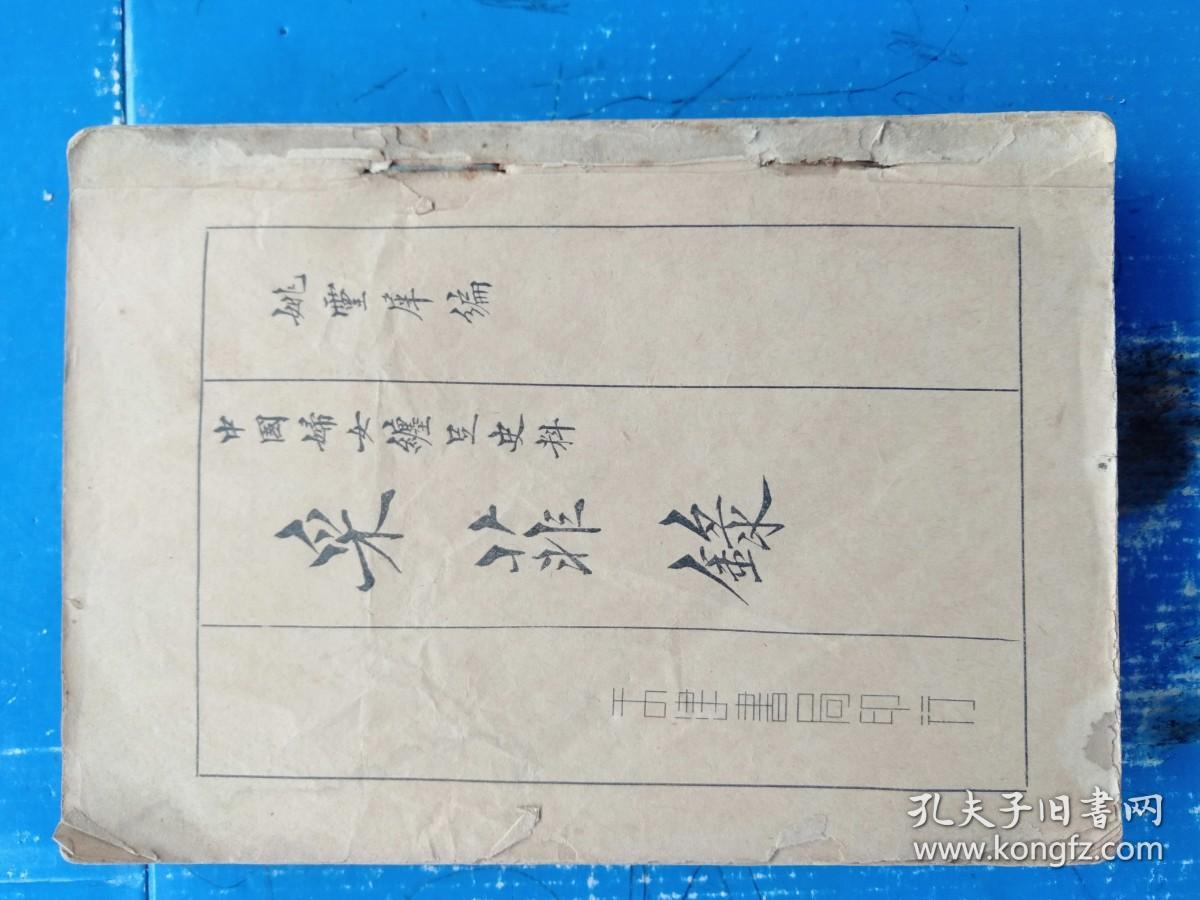 姚靈犀編
中國婦女纏足史料
采菲錄
天津書局印行
孔夫子旧書网
www.kongfz.com